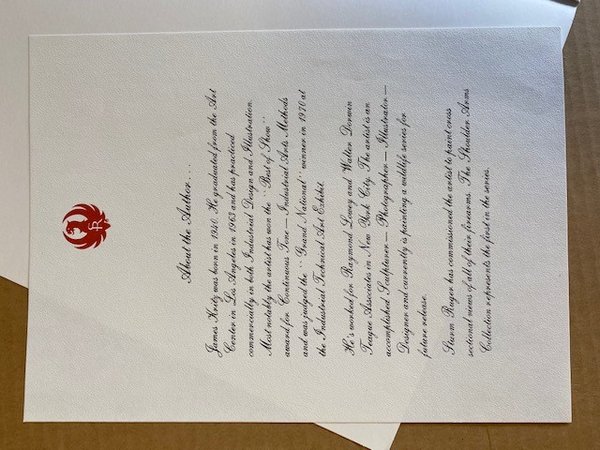 About the Author....
James Kritz was born in 1940. He graduated from the Art
Center in Los Angeles in 1963 and has practiced
commercially in both Industrial Design and Illustration.
Most notably the artist has won the "Best of Show"
award for Continuous Tone — Industrial Arts Methods
and was judged the "Grand National" winner in 1970 at
the Industrial Technical Art Exhibit.
He's worked for Raymond Lowy and Walter Dorwin
Teague Associates in New York City. The artist is an
accomplished Sculpturer — Photographer — Illustrator —
Designer and currently is painting a wildlife series for
future release.
Sturm Ruger has commissioned the artist to paint cross
sectional views of all of their firearms. The Shoulder Arms
Collection represents the first in the series.